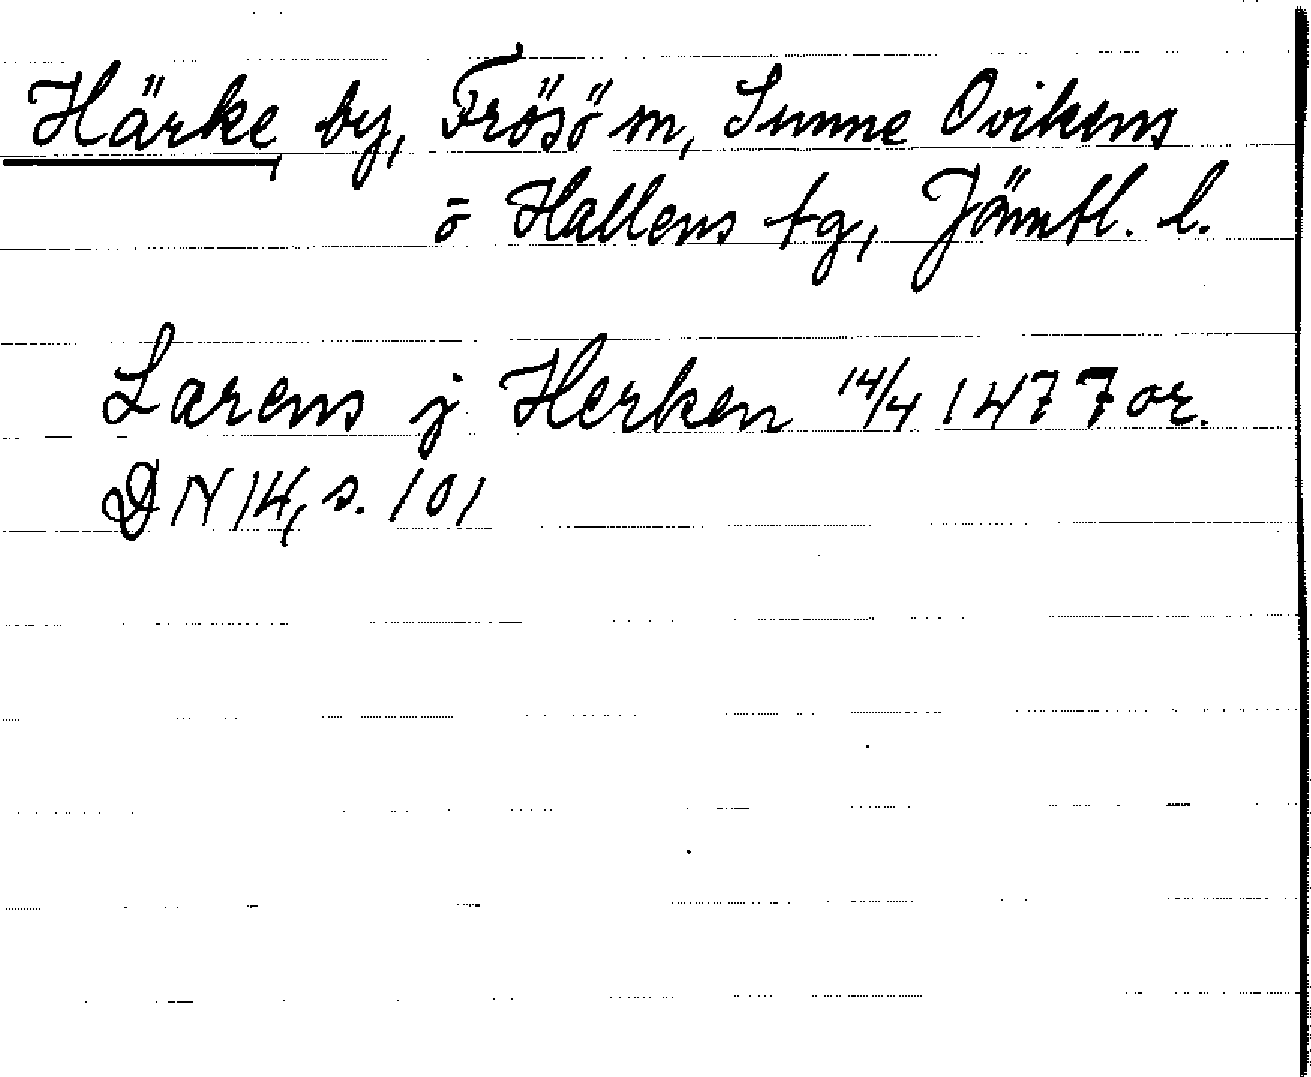 Härke, by, Frösö sn, Sunne Ovikens
o Hallens tg, Jämtl. l.
Larens j Herken 14/4 1477 or.
DN 14, s. 101